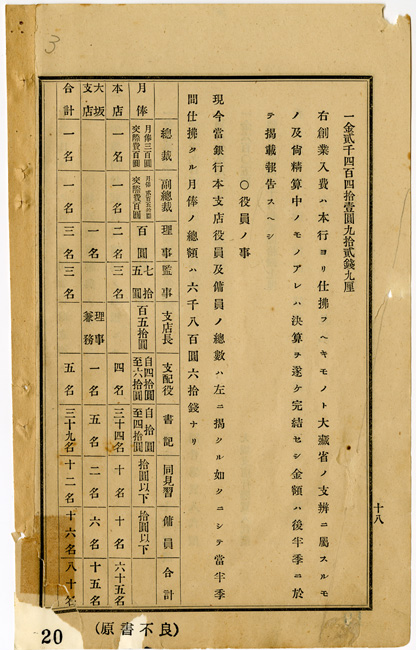 3
一金貳千四百四拾壹圓九拾貳錢九厘
右創業入費ハ本行ヨリ仕拂フヘキモノト大藏省ノ支辨ニ屬スルモ
ノ及尙精算中ノモノアレハ決算ヲ遂ケ完結セシ金額ハ後半季ニ於
テ揭載報告スヘシ
○役員ノ事
現今當銀行本支店役員及傭員ノ總數ハ左ニ揭クル如クニシテ當半季
間仕拂タル月俸ノ總額ハ六千八百圓六拾錢ナリ
十八
總裁 副總裁 理事 監事 支店長 支配役 書記 同見習 傭員 合計
月俸 月俸三百圓 交際費百圓 月俸 交際費百圓 百圓 七拾五圓 百五拾圓 自四拾圓至六拾圓 自拾圓至四拾圓 拾圓以下 拾圓以下
本店 一名 一名 二名 三名 四名 三十四名 十名 十名 六十五名
大坂支店 一名 理事兼務 一名 五名 二名 六名 十五名
合計 一名 一名 三名 三名 五名 三十九名 十二名 十六名 八十名
20
(良不書原)